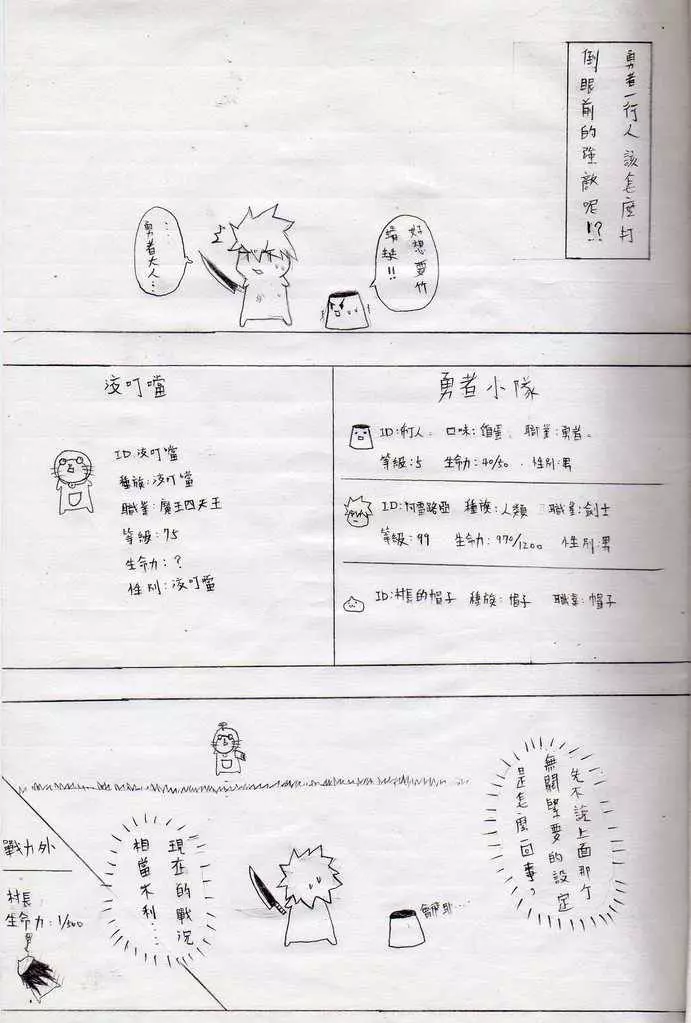 勇者一行人該怎麼打
倒眼前的強敵呢!?
好想要竹
蜻蜓!!
...
勇者大人...
勇者小隊
ID:布丁人。 口味:雞蛋。 職業:勇者。
等級:5 生命力:40/50 性別:男
ID:阿雷路亞 種族:人類 職業:劍士
等級:99 生命力:970/1200 性別:男
ID:村長的帽子 種族:帽子 職業:帽子
叮噹
ID: 叮噹
種族: 叮噹
職業:魔王四天王
等級:75
生命力:?
性別: 叮噹
先不說上面那個
無關緊要的設定
是怎麼回事?
現在的戰況
相當不利...
戰力外
村長
生命力:1/500